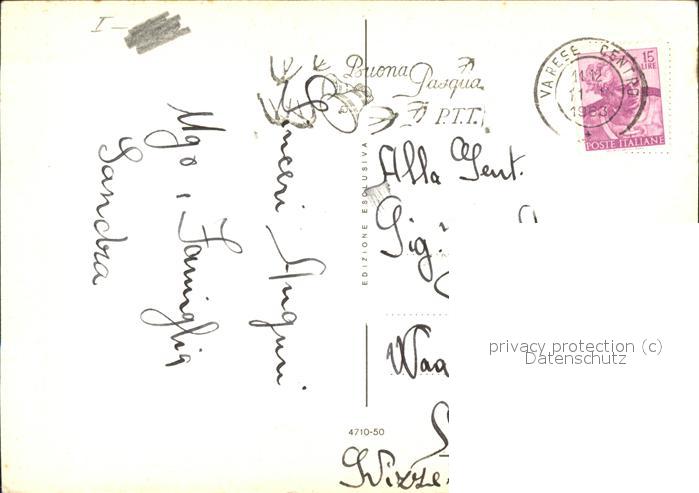 I -
Buona Pasqua
P.T.T.
VARESE CENTRO
1963
15
LIRE
POSTE ITALIANE
Sinceri Auguri
Ugo e Famiglia
Sandra
EDIZIONE ESCLUSIVA
Alla Gent.
Sig.
Waa
Svizze
4710-50
privacy protection (c)
Datenschutz